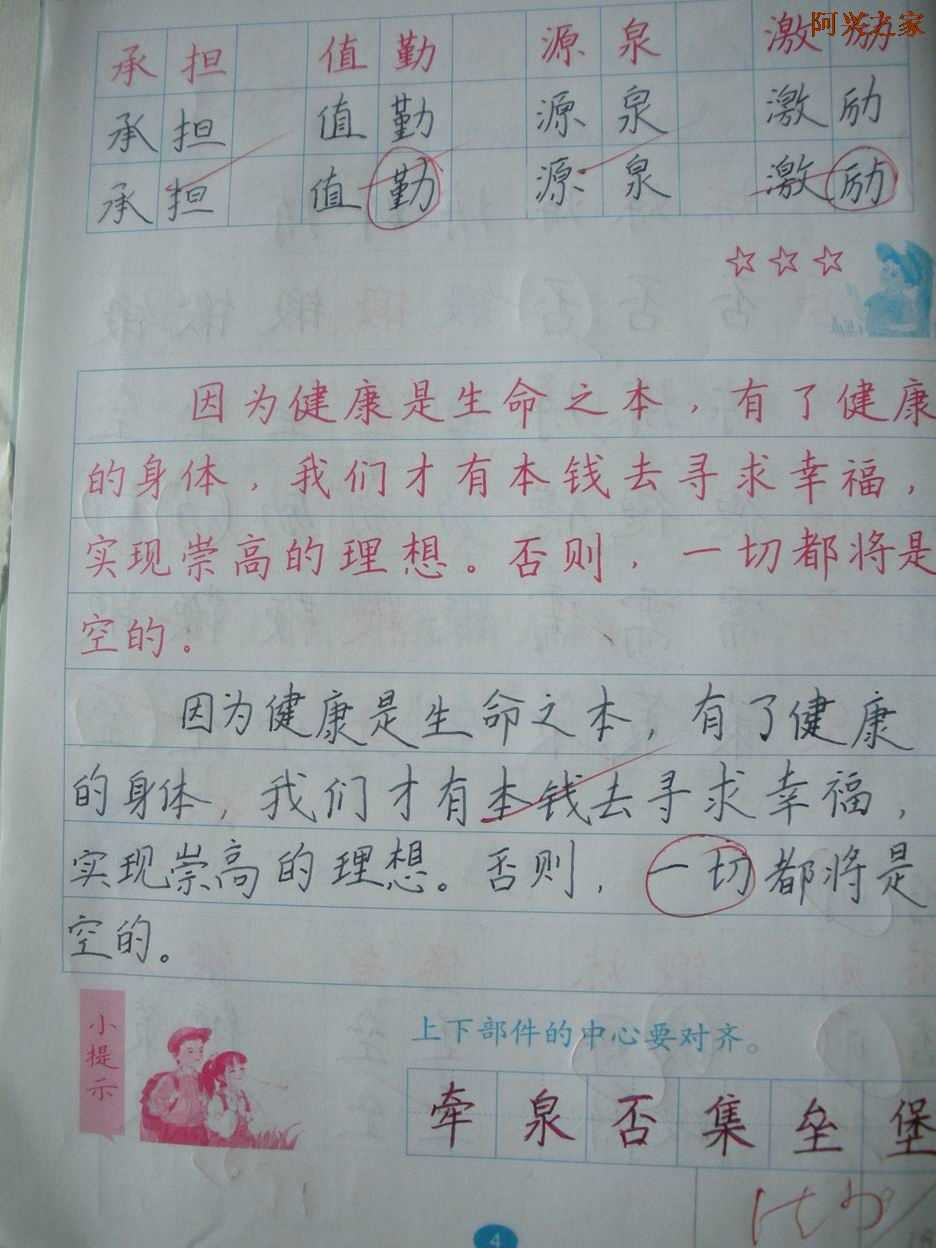 阿兴之家
承担 值勤 源泉 激励
承担 值勤 源泉 激励
承担 值勤 源泉 激励
因为健康是生命之本，有了健康
的身体，我们才有本钱去寻求幸福，
实现崇高的理想。否则，一切都将是
空的。
因为健康是生命之本，有了健康
的身体，我们才有本钱去寻求幸福，
实现崇高的理想。否则，一切都将是
空的。
小提示
上下部件的中心要对齐。
牵泉否集垒堡
4